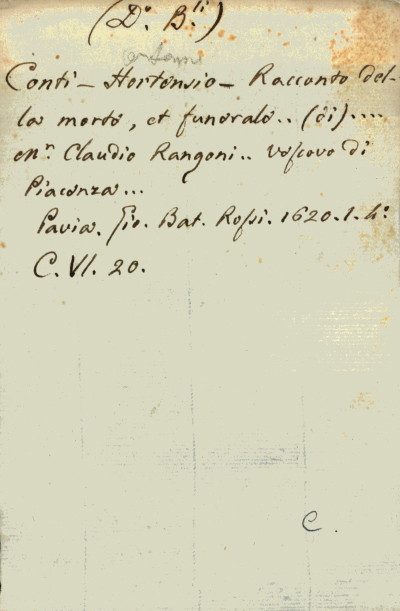 (D.º B.ti)
Conti - Hortensio - Racconto del-
la morte, et funerale.. (di)....
Claudio Rangoni.. Vescovo di
Piacenza...
Pavia. Gio. Bat. Rossi. 1620. 1. 4º
C. VI. 20.
C.